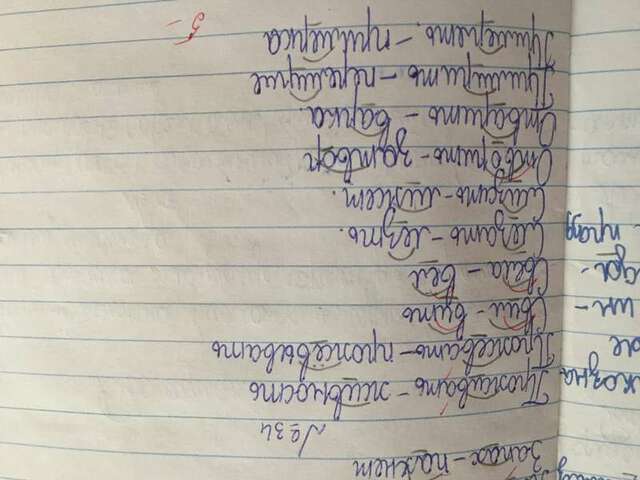 Запах - пахнет
№ 34
Проживать - живность
Прожевать - прожёвывать
Свил - вить
Свела - вёл
Слезать - лезть.
Слизать - лижет.
Отворить - затвор
Отварить - варка.
Примирить - перемирие
Примерять. - примерка
5-
хозна
де
ин-